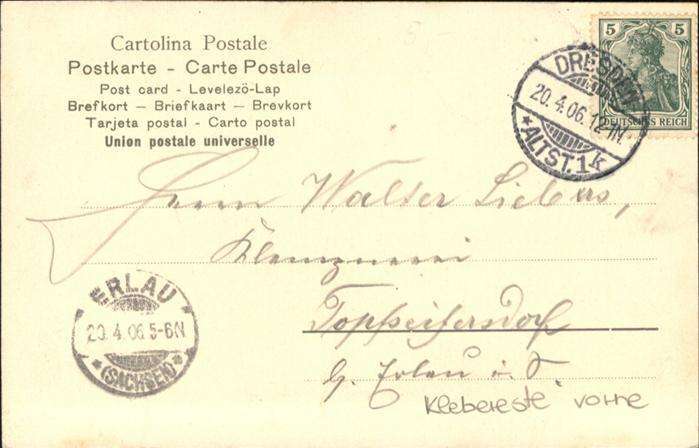 Cartolina Postale
Postkarte - Carte Postale
Post card - Levelezö-Lap
Brefkort — Briefkaart — Brevkort
Tarjeta postal - Carto postal
Union postale universelle
5 5
DEUTSCHES REICH
DRESDEN
20.4.06.12-1N.
*ALTST.1k
Herrn Walter Liebers,
Topfseifersdorf
b. Erlau i. S.
ERLAU
20.4.06 5-6N
*(SACHSEN)*
Klebereste vorne